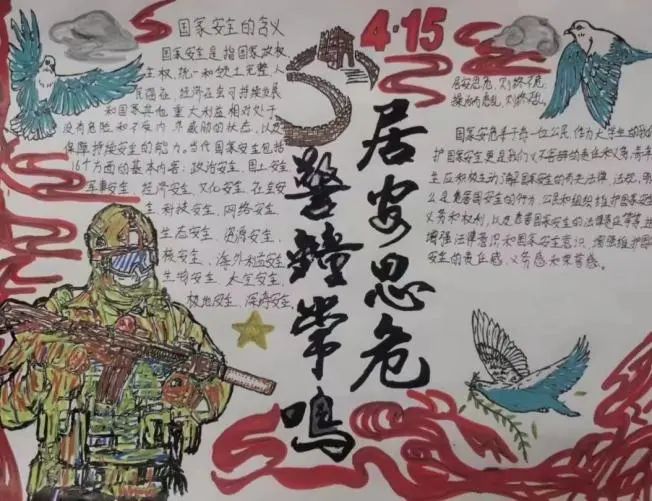 国家安全的含义
国家安全是指国家政权
主权、统一和领土完整、人
民福祉、经济社会可持续发展
和国家其他重大利益相对处于
没有危险和不受内外威胁的状态,以及
保障持续安全的能力。当代国家安全包括
16个方面的基本内容:政治安全、国土安全
军事安全、经济安全、文化安全、社会安
全、科技安全、网络安全、
生态安全、资源安全、
核安全、海外利益安全
生物安全、太空安全、
极地安全、深海安全。
4·15
居安思危
警钟常鸣
居安思危,则终不危
操治虑乱,则终不乱。
国家安危事于每一位公民,作为大学生的我们
护国家安全更是我们义不容辞的责任和义务,青年
生应积极主动了解国家安全的有关法律、法规,
么是危害国家安全的行为,公民和组织维护国家安
义务和权利,以及危害国家安全的法律责任等等,
增强法律意识和国家安全意识,增强维护国家
安全的责任感、义务感和荣誉感。